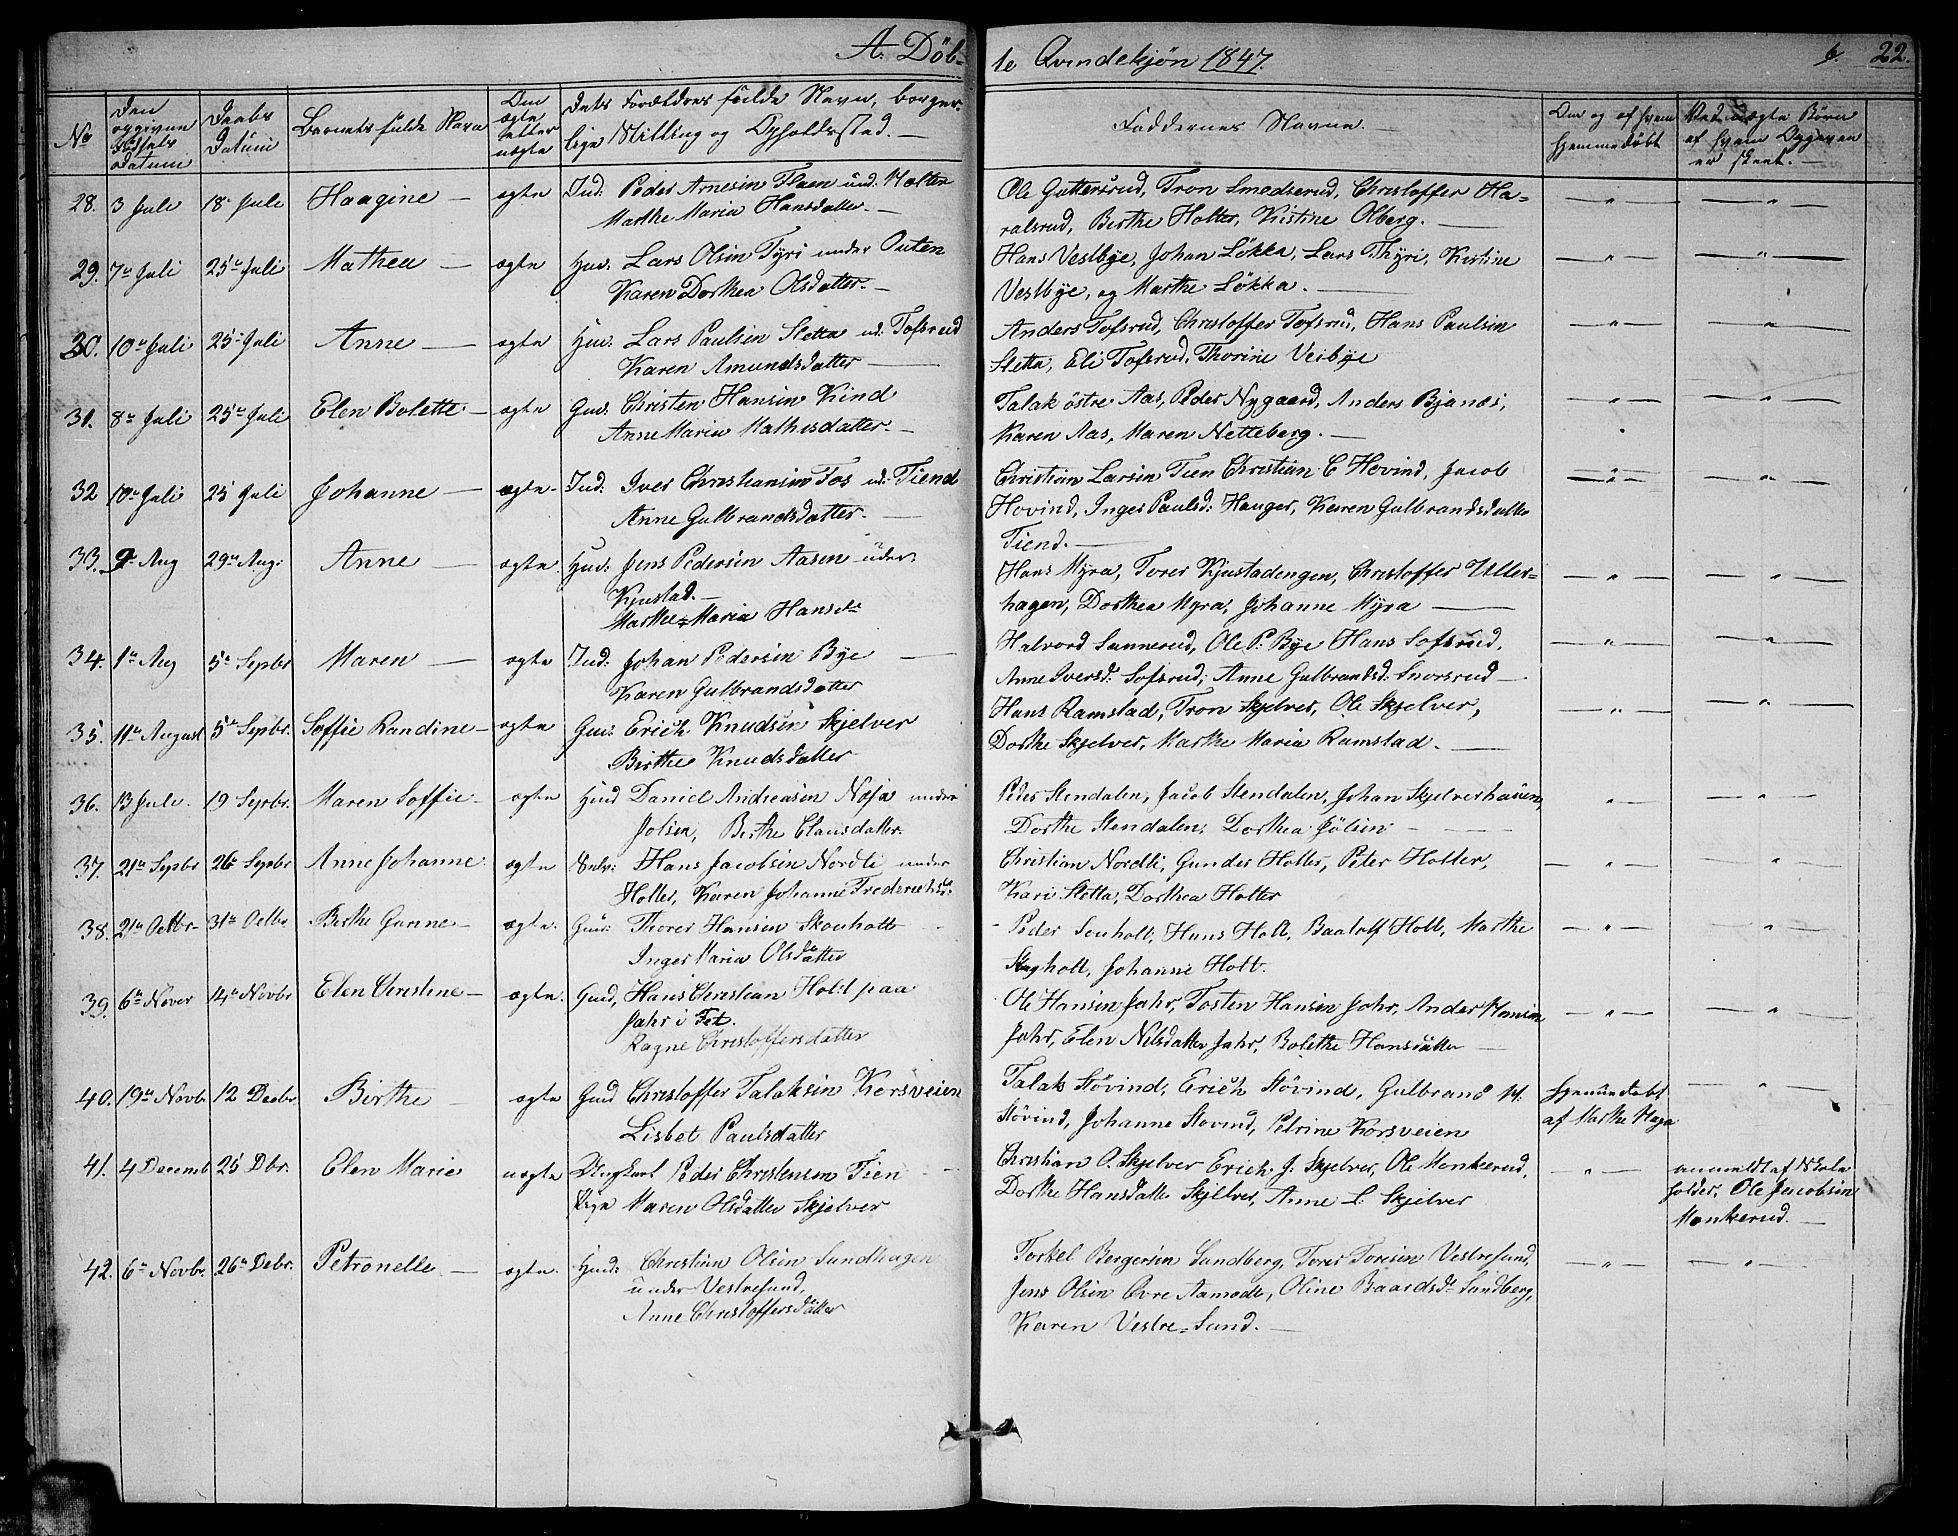 A. Döb-
te Qvindekjøn 1847.
6. 22.
No
Den opgivne Fødsels datum
Daabs Datum
Barnets fulde Navn
Om ægte eller uægte
Dets Forældres fulde Navn, borger-
lige Stilling og Opholdssted. —
Faddernes Navne. —
Om og af hvem hjemmedöbt
Ved uægte Börn af hvem Opgaven er skeet. —
28. 3 Juli 18de Juli Haagine — ægte Ind: Peder Arnesen Flaen und: Holter
Marthe Maria Hansdatter. —
Ole Guttersrud, Tron Smedserud, Christoffer Ha-
ralsrud, Birthe Holter, Kistine Olberg. —
29. 7de Juli 25de Juli Mathea — ægte Huu: Lars Olsen Tyri under Outen
Karen Dorthea Olsdatter. —
Hans Vestbye, Johan Løkka, Lars Thyri, Kistine
Vestbye, og Marthe Løkka. —
30. 10de Juli 25de Juli Anne — ægte Huu: Lars Paulsen Sletta ud: Tofsrud
Karen Amundsdatter —
Anders Tofsrud, Christoffer Tofsrud, Hans Paulsen
Sletta, Eli Tofsrud, Thorine Veibye
31. 8de Juli 25de Juli Elen Bolette — ægte Gud: Christen Hansen Kind
Anne Maria Mathisdatter —
Talak östre Aas, Peder Nygaard, Anders Bjanæs,
Karen Aas, Maren Netteberg. —
32 10de Juli 25 Juli Johanne — ægte Ind: Iver Christiansen Fos ud: Tiend
Anne Gulbrandsdatter. —
Christian Larsen Tien Christian C Hovind, Jacob
Hovind, Inger Paulsd: Hauger, Karen Gulbrandsdatter
Tiend. —
33. 9de Aug 29de Aug: Anne — ægte Huu: Jens Pedersen Aasen under
Kjustad. —
Marthe Maria Hansdr
Hans Myra, Tores Kjustadengen, Christoffer Uller-
hagen, Dorthea Myra, Johanne Myra —
34. 1de Aug 5de Sepbr Maren — ægte Ind: Johan Pedersen Bye —
Karen Gulbrandsdatter
Halvord Sannerud, Ole P: Bye Hans Sofsrud,
Anne Iversd: Sofsrud, Anne Gulbrandsd: Snorsrud —
35. 11de August 5de Sepbr. Soffie Randine — ægte Gud: Erich Knudsen Skjelver
Birthe Knudsdatter
Hans Ramstad, Tron Skjelver, Ole Skjelver,
Dorthe Skjelver, Marthe Maria Ramstad. —
36. 13 Juli. 19 Sepbr. Maren Soffie — ægte Huud Daniel Andreasen Nosa under
Jølsen, Birthe Clausdatter.
Peder Stendalen, Jacob Stendalen, Johan Skjelverhausen,
Dorthe Stendalen, Dorthea Jölsen —
37. 21de Sepbr 26de Sepbr Anne Johanne ægte Hans Jacobsen Nordli under
Holter, Karen Johanne Frederichsd:
Christian Nordli, Gunder Holter, Peter Holter,
Kari Sletta, Dorthea Holter
38. 21de Octbr 31de Octbr Birthe Gunne — ægte. Gud: Thorer Hansen Skouholt
Inger Maria Olsdatter
Peder Souholt, Hans Holt, Baalolf Holt, Marthe
Skogholt, Johanne Holt.
39. 6de Nover 14de Novbr Elen Christine — ægte. Gud, Hans Christian Holt paa
Jahr i Fet.
Ragne Christoffersdatter
Ole Hansen Jahr, Tosten Hansen Jahr, Ander Hansen
Jahr, Elen Nilsdatter Jahr, Bolethe Hansdatter —
40. 19de Novbr 12 Decbr. Birthe — ægte Gud Christoffer Talaksen Korsveien
Lisbet Paulsdatter
Talak Stövind, Erich Stövind, Gulbrand M.
Stövind, Johanne Stovind, Petrine Korsveien
Hjemmedøbt
af Marthe Haga
41. 4 Decemb 25 Dbr. Elen Marie uægte Ungkarl Peder Christensen Tien —
Pige Maren Olsdatter Skjelver
Christian O. Skjelver Erich J. Skjelver, Ole Monkerud,
Dorthe Hansdatter Skjelver, Anne L. Skjelver
anmeldt af Skole
holder, Ole Jacobsen
Monkerud. —
42. 6de Novbr. 26de Debr. Petronelle — ægte. Huud: Christian Olsen Sundhagen
under Vestresund,
Anne Christoffersdatter
Torkel Bergersen Sundberg, Tores Toresen Vestresund,
Jens Olsen Övre Aamodt, Oline Baardsdr Sundberg,
Karen Vestre-Sund. —